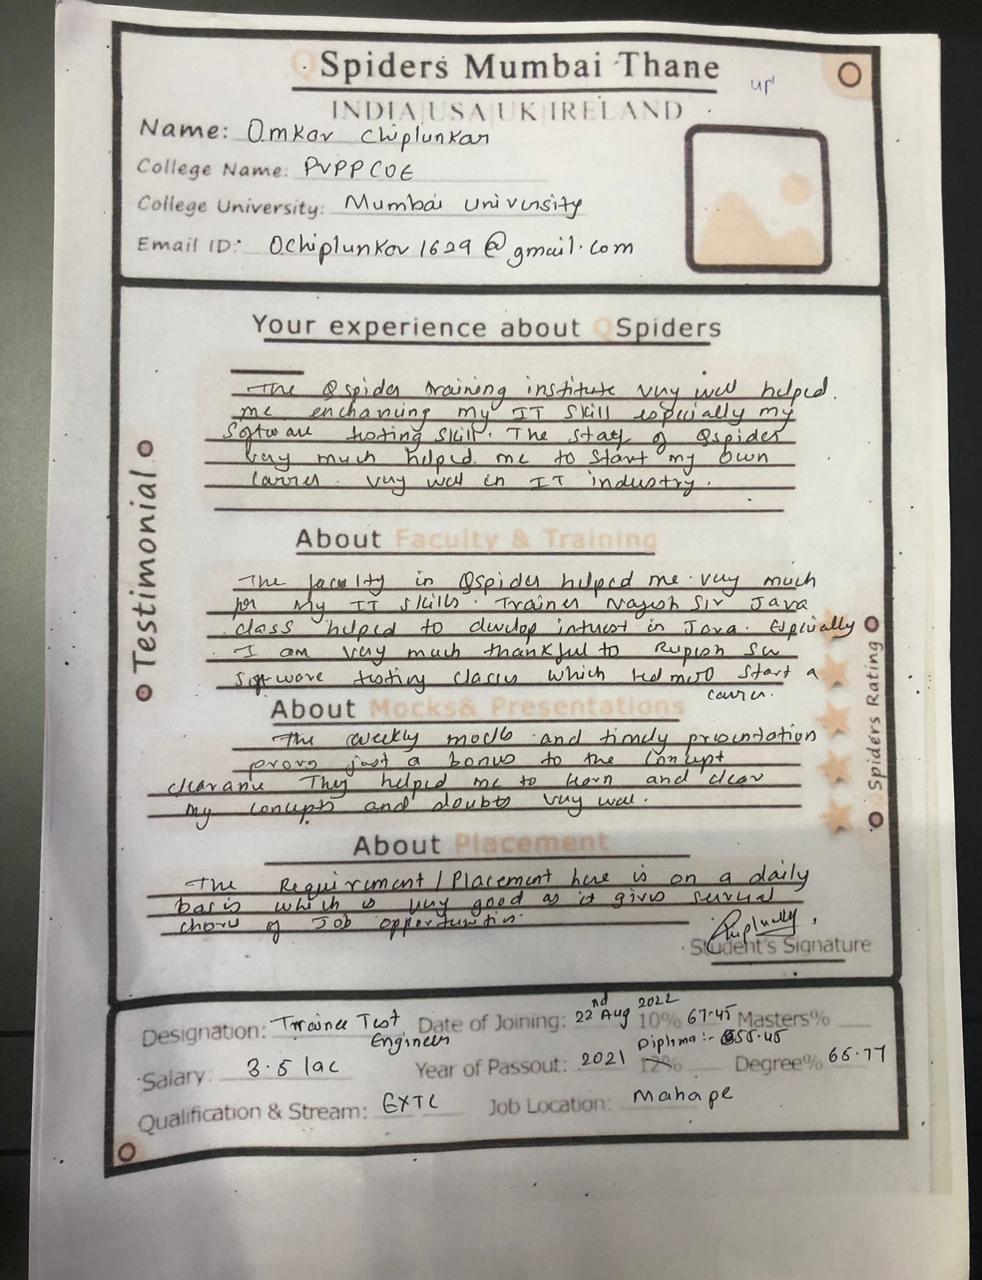 QSpiders Mumbai Thane
up
INDIA|USA|UK|IRELAND
Name: Omkar Chiplunkar
College Name: PVPPCOE
College University: Mumbai University
Email ID: Ochiplunkar1629@gmail.com
Your experience about QSpiders
The Qspider training institute very well helped
me enchancing my IT Skill especially my
Software testing skill. The staff of Qspider
very much helped me to start my own
carrier very well in IT industry.
About Faculty & Training
The faculty in QSpider helped me very much
for My IT skills. Trainer Nagesh Sir Java
class helped to develop interest in Java. Especially
I am very much thankful to Rupesh Sir
Software testing classes which led me to start a
carrier.
About Mocks& Presentations
The weekly mocks and timely presentation
proves just a bonus to the concept
clearance They helped me to learn and clear
my concepts and doubts very well.
About Placement
The Requirement / Placement here is on a daily
basis which is very good as it gives several
of Job opportunities.
Student's Signature
Testimonial
QSpiders Rating
Designation: Trainee Test Engineer Date of Joining: 22nd Aug 2022 10% 67.45 Masters%
Salary: 3.5 lac Year of Passout: 2021 12% Diploma:- 55.45 Degree% 65.77
Qualification & Stream: EXTC Job Location: Mahape